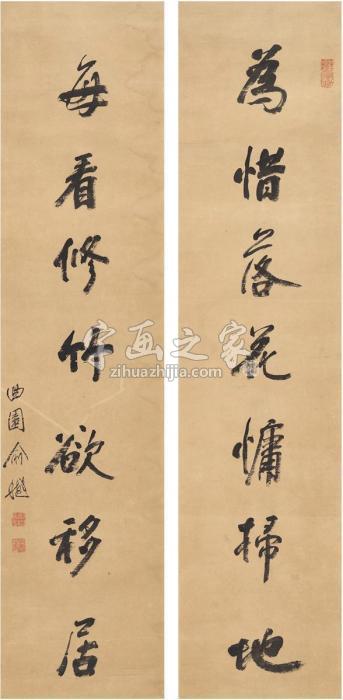 為惜落花慵掃地
每看修竹欲移居
曲園俞樾
字画之家
zihuazhijia.com